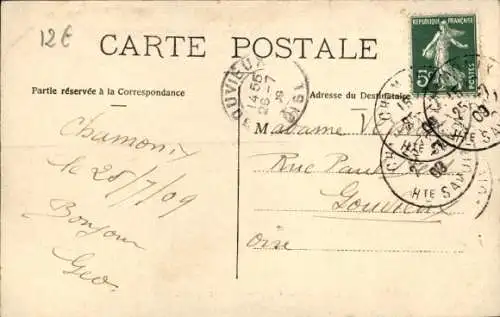 12 €
CARTE POSTALE
RÉPUBLIQUE FRANÇAISE
5c
POSTES
GOUVIEUX
14 55
26 - 7
OISE
Partie réservée à la Correspondance
Adresse du Destinataire
CHAMONIX
25 - 7
09
HTE SAVOIE
Chamonix
le 25/7/09
Bonjour
Geo
Madame
Rue
Gouvieux
Oise